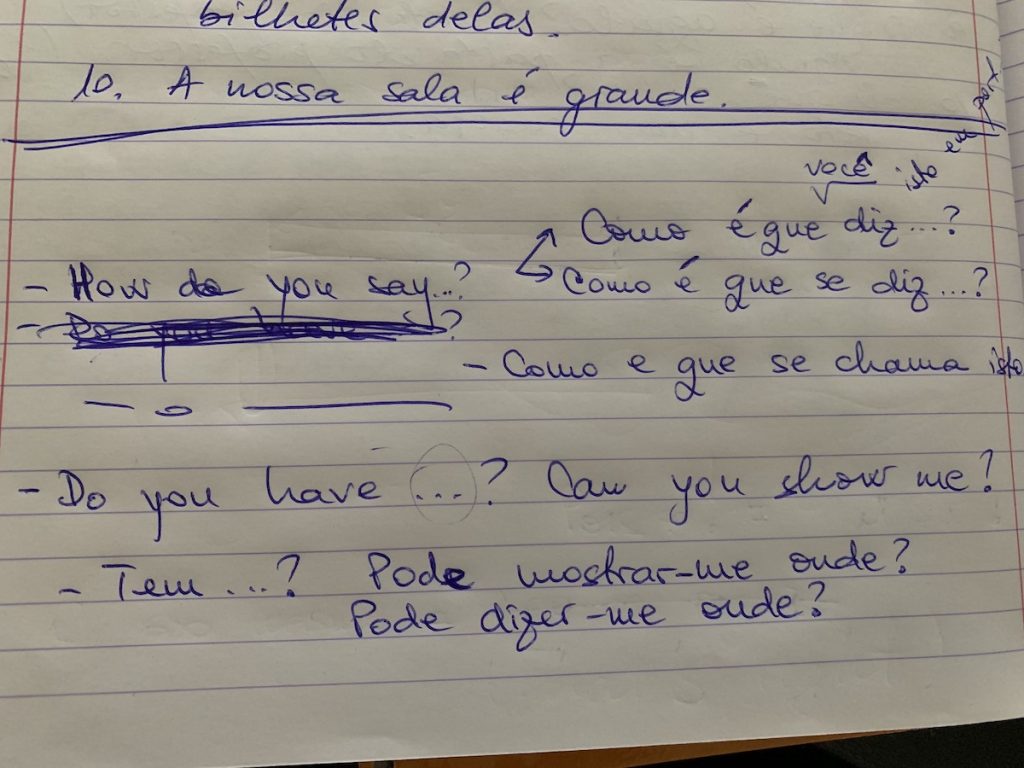 bilhetes delas.
10. A nossa sala é grande.
você isto em port.
Como é que diz ...?
- How do you say...?
Como é que se diz ...?
- Como e que se chama isto
- Do you have ... ? Can you show me?
- Tem ...? Pode mostrar-me onde?
Pode dizer-me onde?